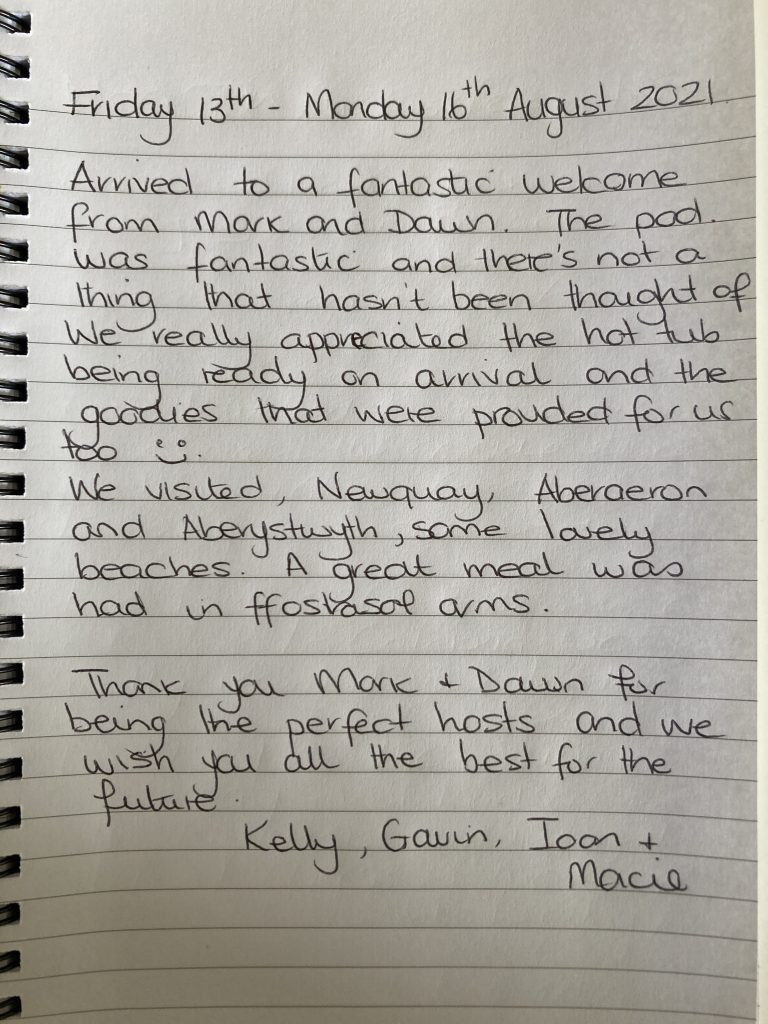 Friday 13th - Monday 16th August 2021.
Arrived to a fantastic welcome
from Mark and Dawn. The pod.
was fantastic and there's not a
thing that hasn't been thought of
We really appreciated the hot tub
being ready on arrival and the
goodies that were provided for us
too :).
We visited, Newquay, Aberaeron
and Aberystwyth, some lovely
beaches. A great meal was
had in ffostrasol arms.
Thank you Mark + Dawn for
being the perfect hosts and we
wish you all the best for the
future.
Kelly, Gavin, Ioan +
Macie